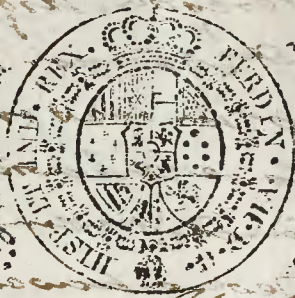 FERDIN • VII • D • G •
HISP • ET IND • REX •